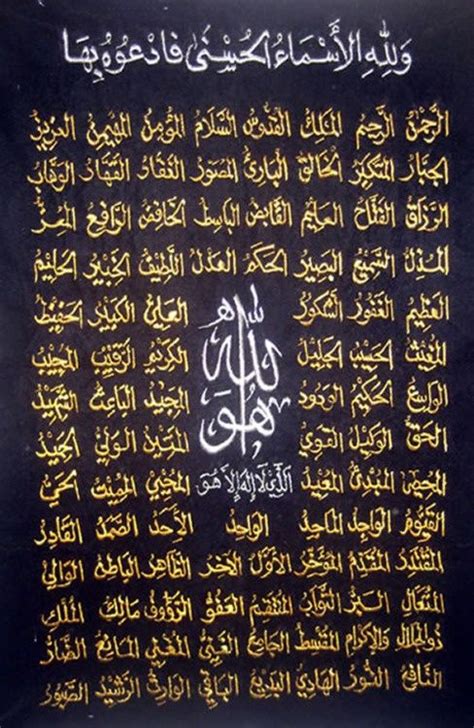 وَلِلّٰهِ الأَسْمَاءُ الحُسْنَى فَادْعُوهُ بِهَا
الرَّحْمٰنُ الرَّحِيمُ المَلِكُ القُدُّوسُ السَّلَامُ المُؤْمِنُ المُهَيْمِنُ العَزِيزُ
الجبار المتكبر الخالق البارئ المصور الغفار القهار الوهاب
الرزاق الفتاح العليم القابض الباسط الخافض الرافع المعز
المذل السميع البصير الحكم العدل اللطيف الخبير الحليم
العظيم الغفور الشكور العلي الكبير الحفيظ
المقيت الحسيب الجليل الكريم الرقيب المجيب
هو الله
الواسع الحكيم الودود المجيد الباعث الشهيد
الحق الوكيل القوي المتين الولي الحميد
المحصي المبدئ المعيد الذي لا إله إلا هو المحيي المميت الحي
القيوم الواجد الماجد الواحد الأحد الصمد القادر
المقتدر المقدم المؤخر الأول الآخر الظاهر الباطن الوالي
المتعال البر التواب المنتقم العفو الرؤوف مالك الملك
ذوالجلال والإكرام المقسط الجامع الغني المغني المانع الضار
النافع النور الهادي البديع الباقي الوارث الرشيد الصبور